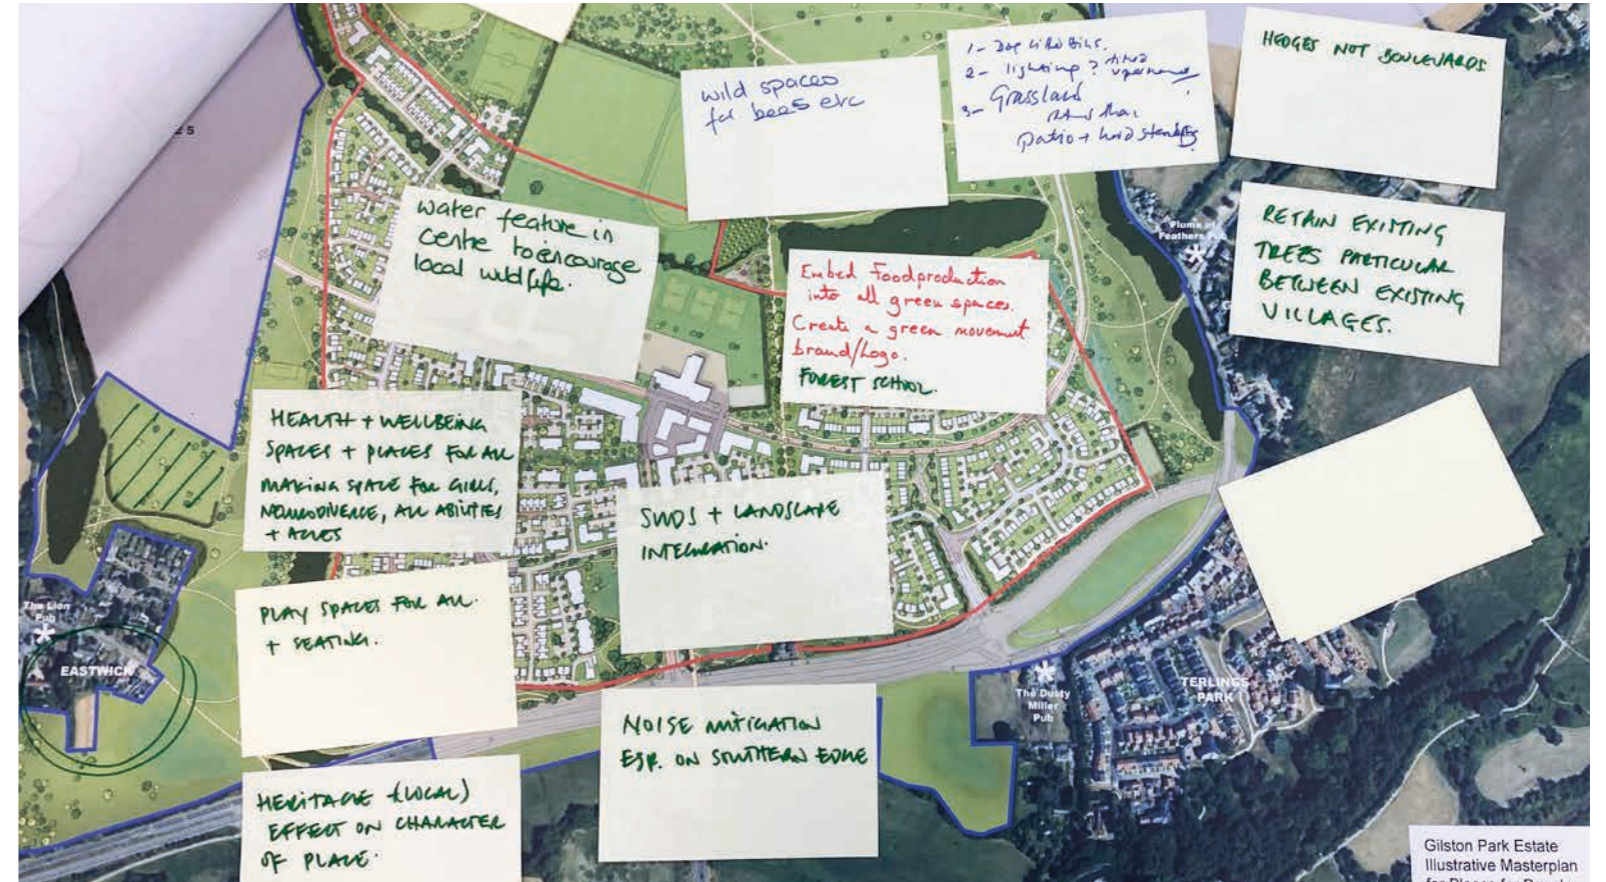 wild spaces
for bees etc
1- Dog litter Bins.
2- lighting?
3- Grassland
patio + hard standing
HEDGES NOT BOULEVARDS
Plume of
Feathers Pub
water feature in
centre to encourage
local wildlife.
Embed Food production
into all green spaces.
Create a green movement
brand/logo.
FOREST SCHOOL.
RETAIN EXISTING
TREES PARTICULAR
BETWEEN EXISTING
VILLAGES.
HEALTH + WELLBEING
SPACES + PLACES FOR ALL
MAKING SPACE FOR GIRLS,
NEURODIVERSE, ALL ABILITIES
+ AGES
SUDS + LANDSCAPE
INTEGRATION.
The Lion
Pub
EASTWICK
PLAY SPACES FOR ALL.
+ SEATING.
The Dusty
Miller
Pub
TERLINGS
PARK
NOISE MITIGATION
ESP. ON SOUTHERN EDGE
HERITAGE (LOCAL)
EFFECT ON CHARACTER
OF PLACE.
Gilston Park Estate
Illustrative Masterplan